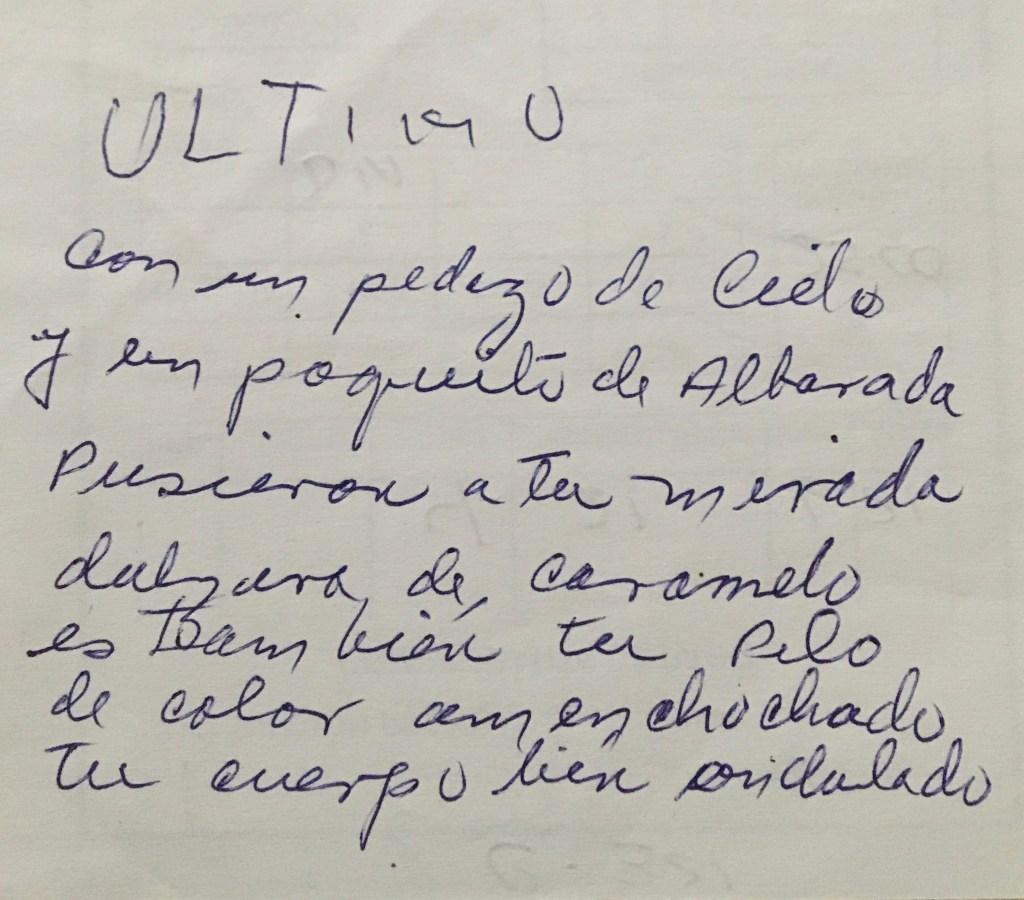 ULTIMO
Con un pedazo de Cielo
y un poquito de Alborada
Pusieron a tu mirada
dulzura de caramelo
es Tambien tu Pelo
de color amenchochado
Tu cuerpo bien ondulado